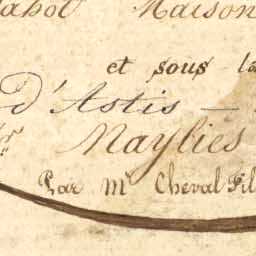 Maison
et sous la
D'Astis
Naylies
Par Mr Cheval Fil